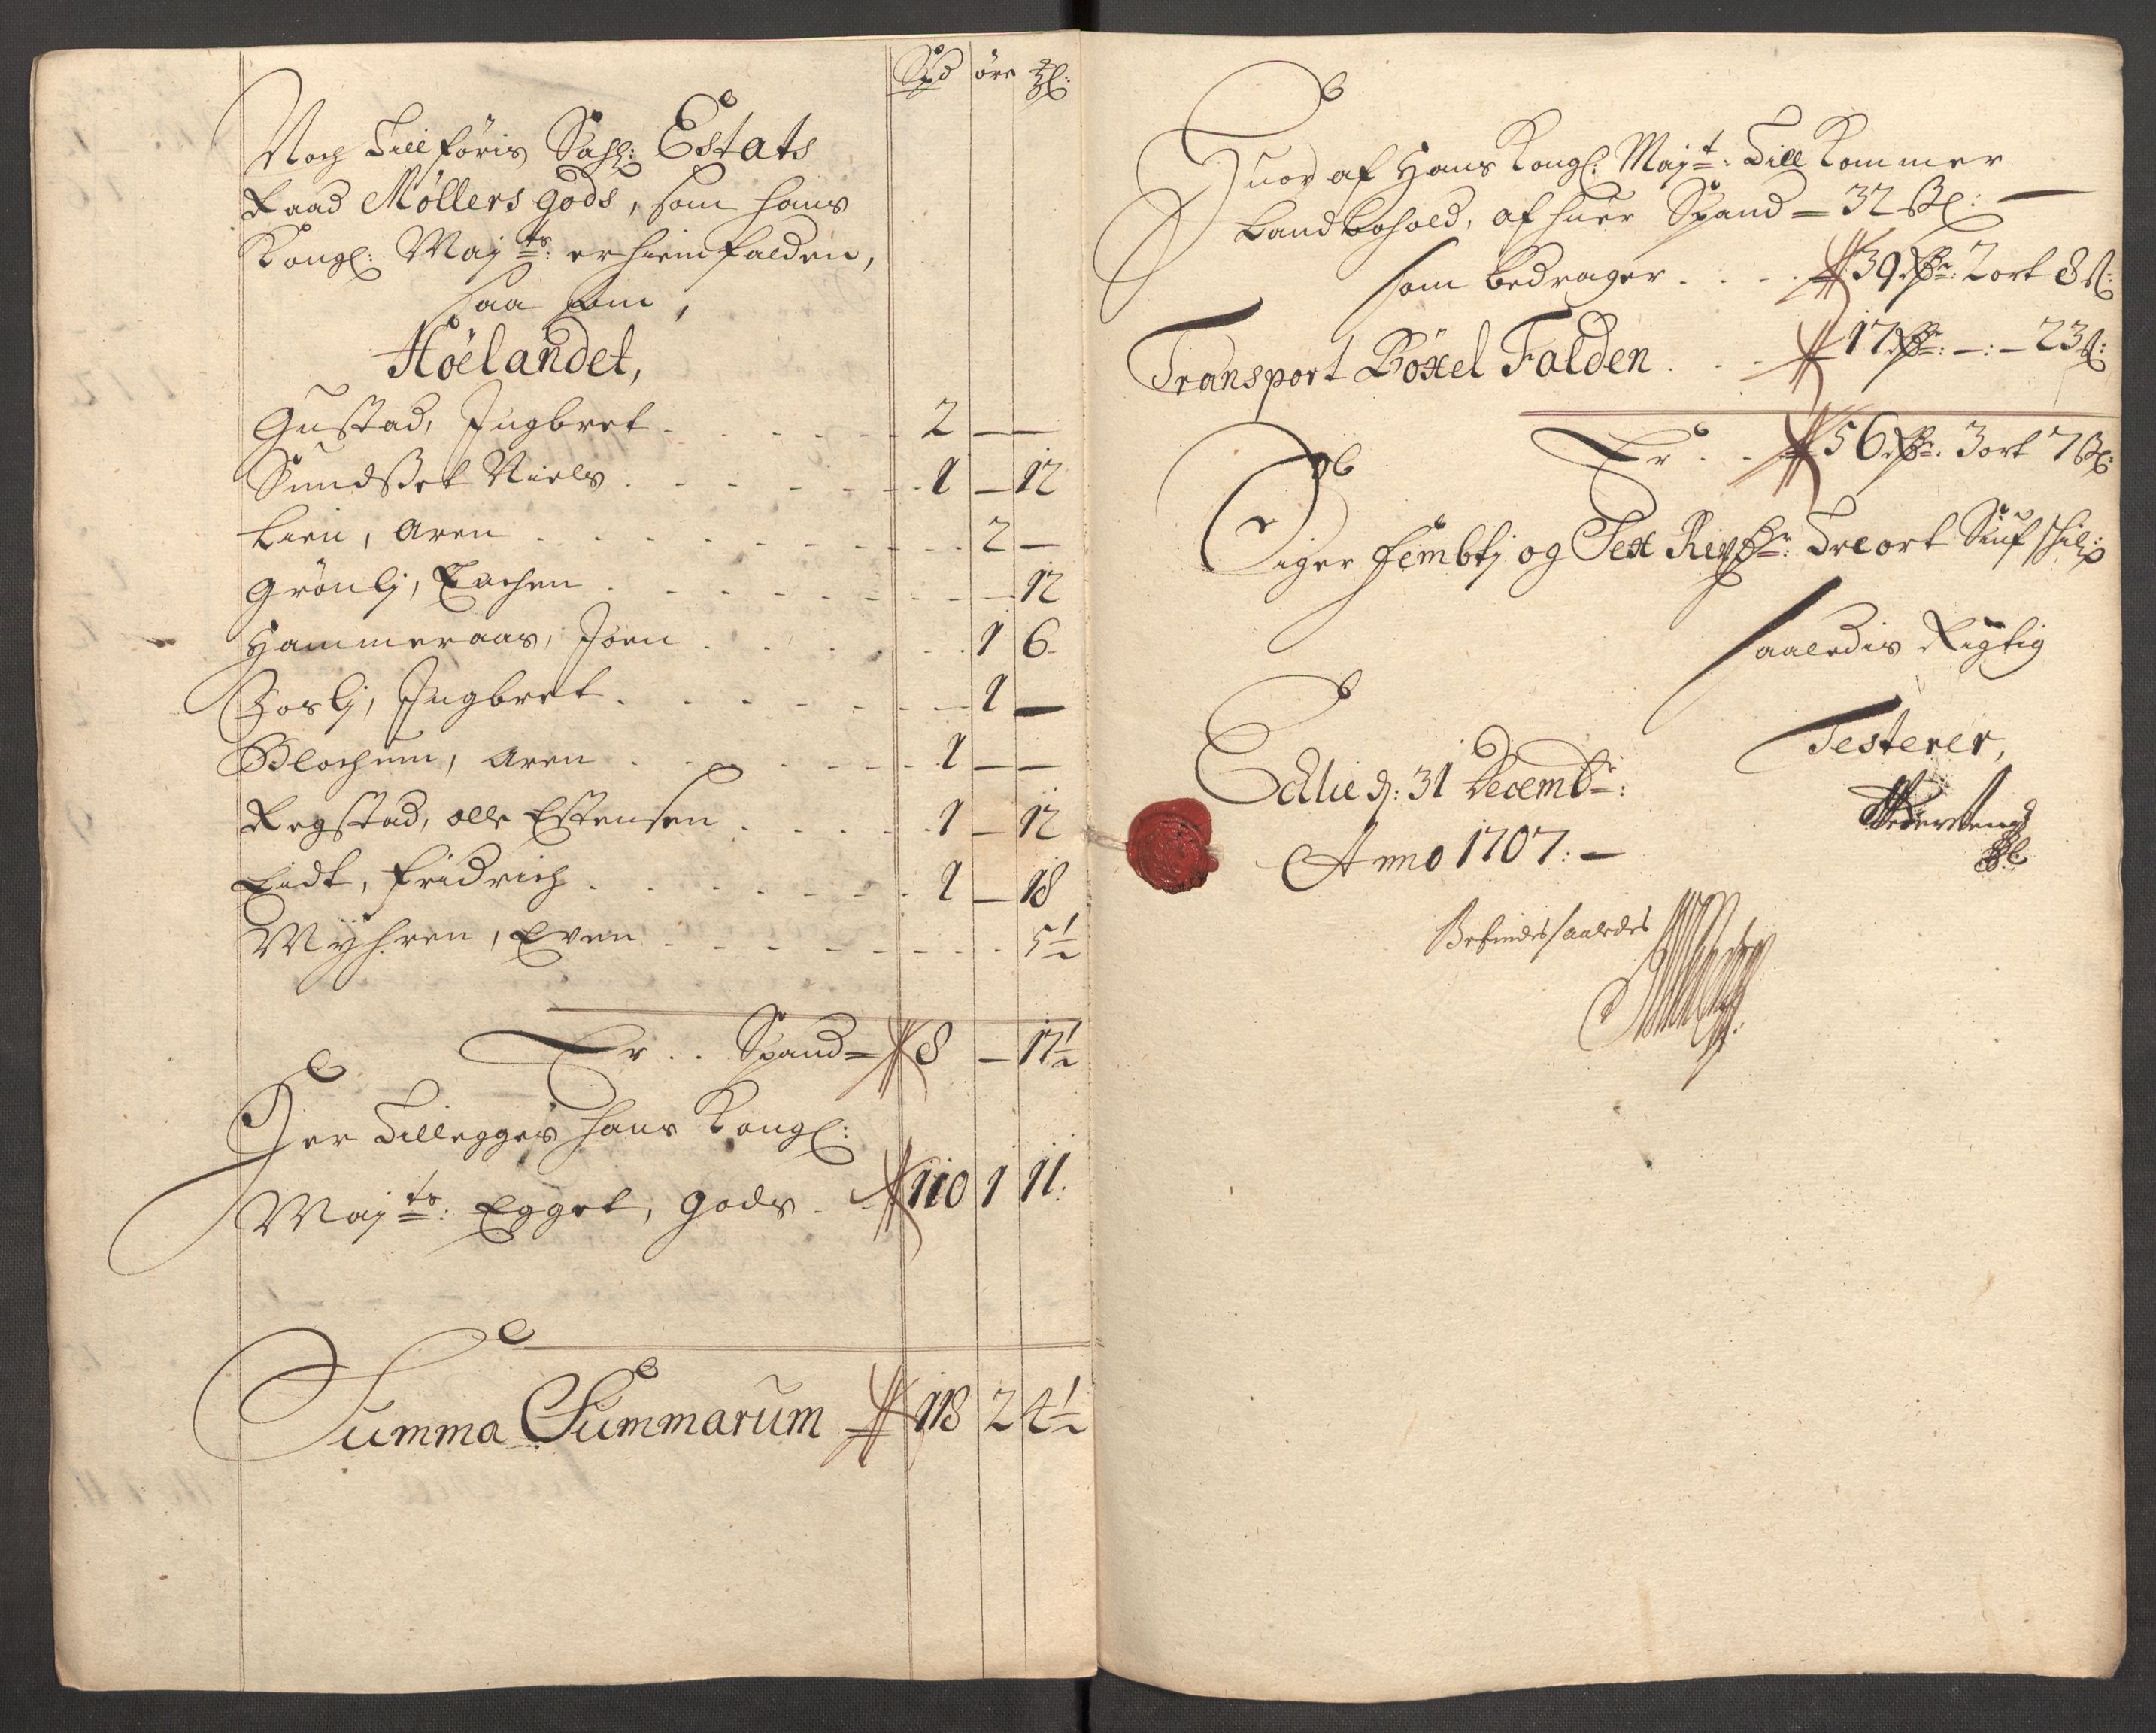 Spd øre ₰l:
Noch Tillføris Sahl: Estats
Raad Møllers gods, som hans
Kongl: Majts: er hiemfalden,
saa som,
Høelandet,
Gustad, Ingbret . . . . . 2 — —
Sundset Niels . . . . . . 1 — 12
Lien, Aren . . . . . . . . 2 —
Grønlj, Rachen . . . . . . — 12
Hammeraas, Joen . . . . . 1 6
Ingbret . . . . . . . 1 —
Blochum, Aren . . . . . 1 — —
Regstad, olle Estensen . . . . 1 — 12
Eidt, Fridrich . . . . . . 1 — 18
Myhren, Even . . . . . . . 5½
Er . . Spand= 8 — 17½
Her Tillegges hans Kongl:
Majts: Egget, gods . . 110 1 11:
Summa Summarum 118 2 4½
Huor af Hans Kongl: Majt: Till Kommer
Landbohold, af huer Spand = 32 sl: —
som bedrager . . . 39 Rdr: 2 ort 8 sl:
Transport Bøxel Falden . . . 17 Rdr: —:— 23 sl:
Er . . 56 Rdr. 3 ort 7 sl:
Siger Fembtj og Sex Rixdr: Tre ort Siuf schil:
saaledis Rigtig
Testerer,
Echlie d: 31 Decembr:
Anno 1707: —
Befindes saaledes